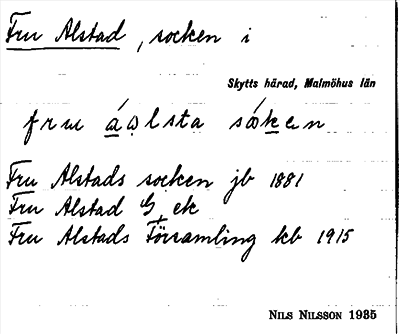 Fru Alstad, socken i
Skytts härad, Malmöhus län
fru áo̜lsta sǿken
Fru Alstads socken jb 1881
Fru Alstad G ek
Fru Alstads Församling kb 1915
NILS NILSSON 1935